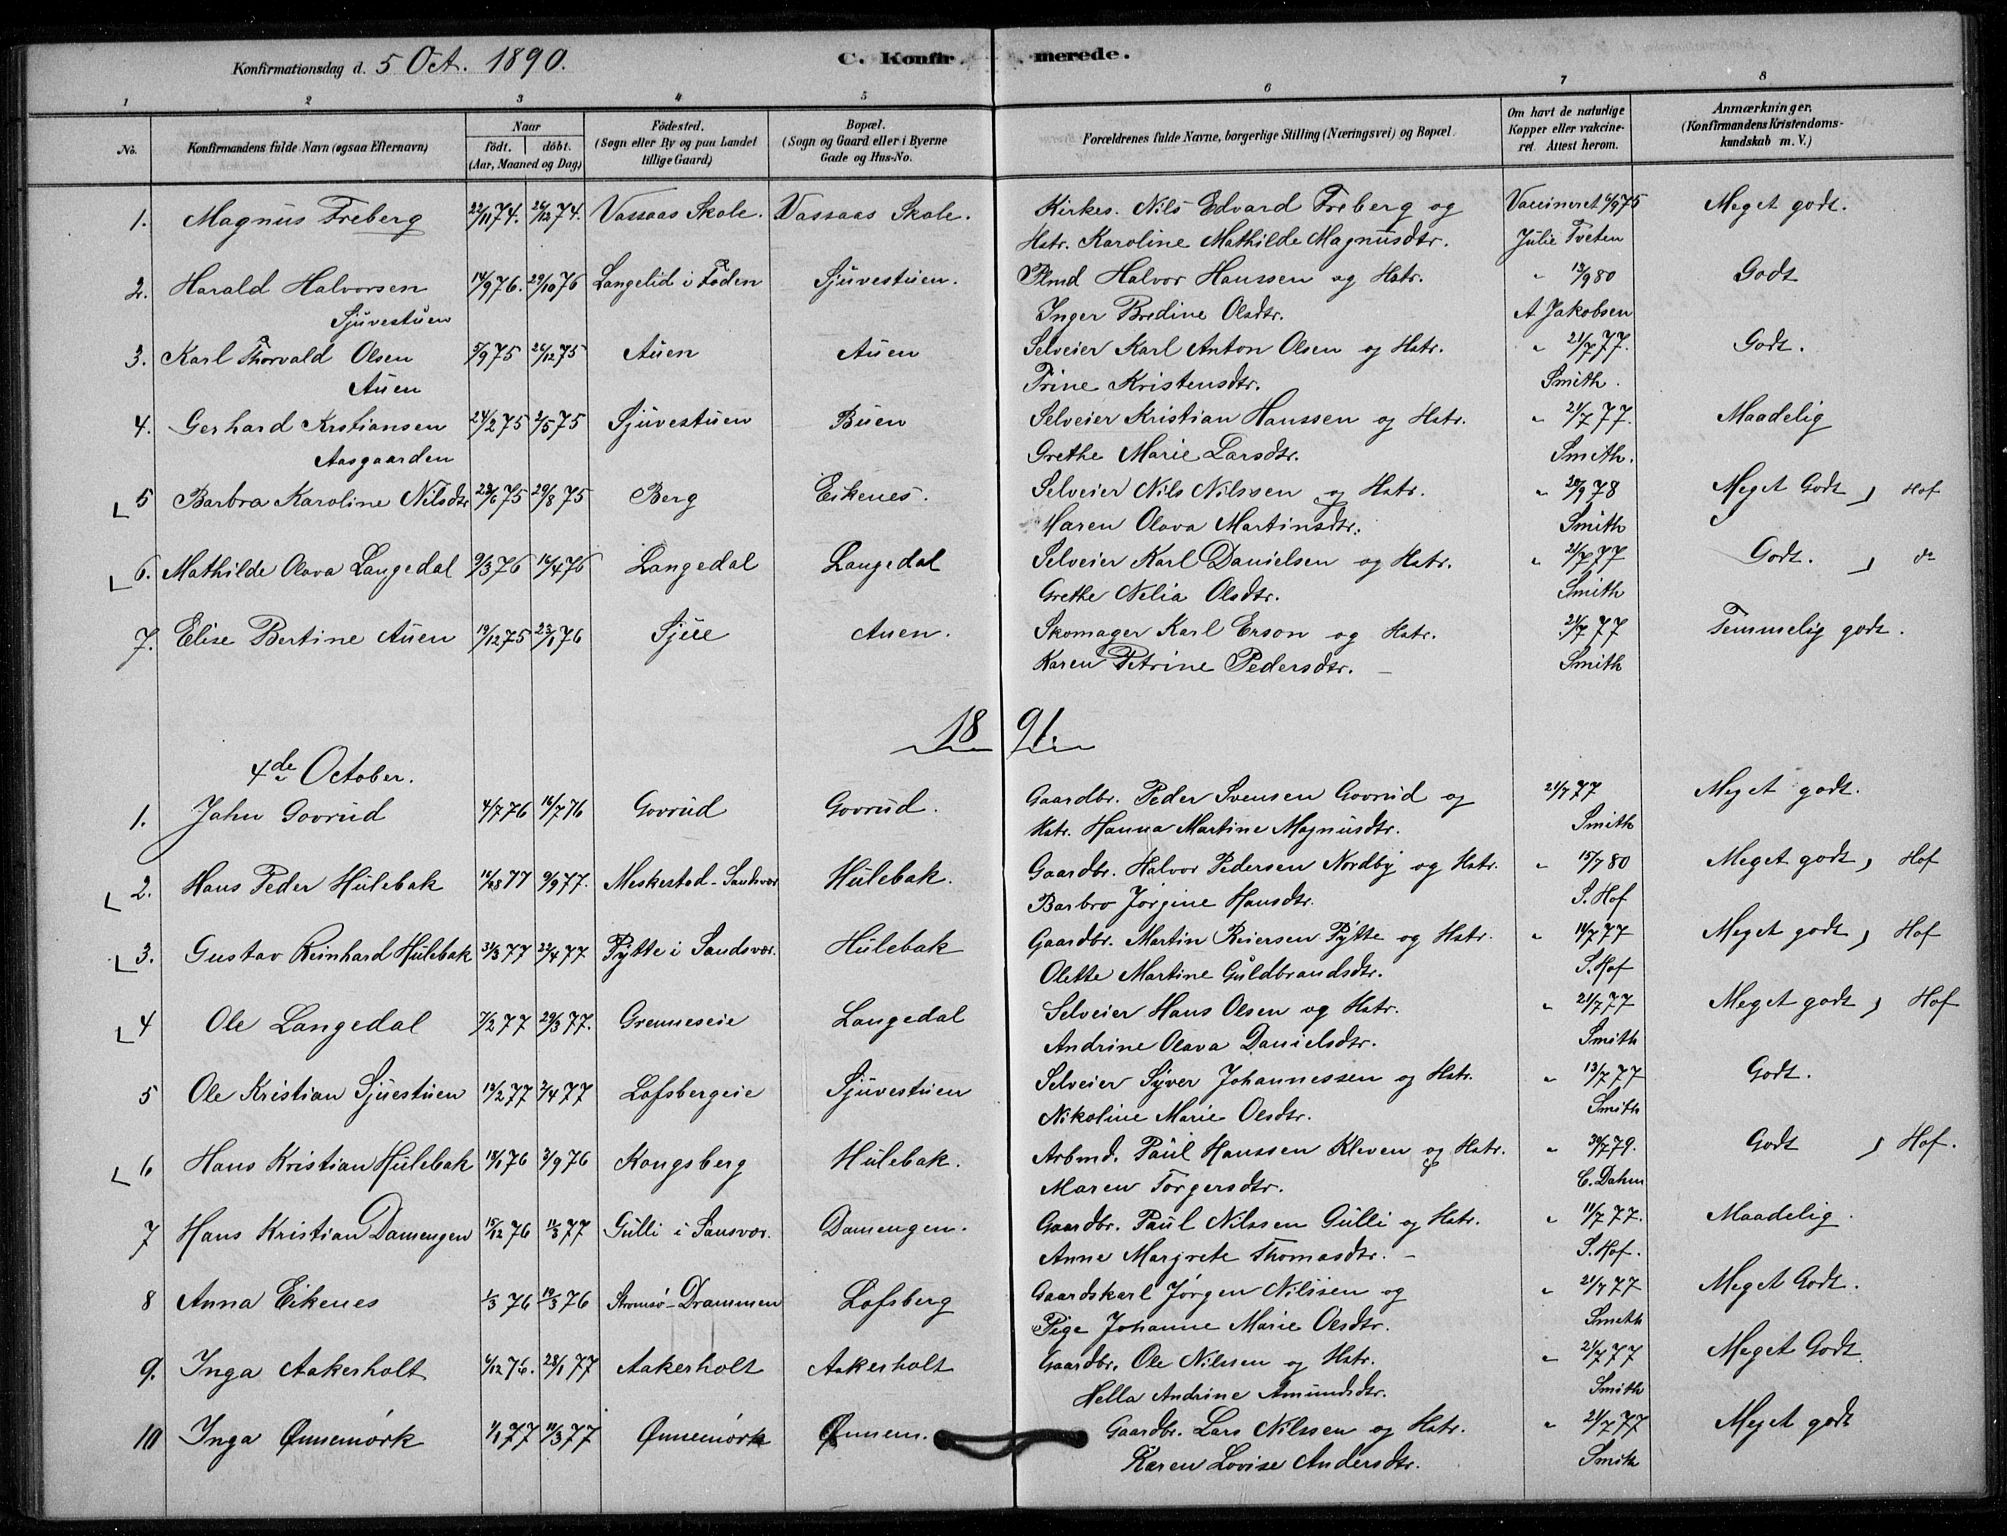 Konfirmationsdag d. 5 Oct. 1890. C. Konfirmerede.
1 2 3 4 5 6 7 8
No. Konfirmandens fulde Navn (ogsaa Efternavn) Naar født. døbt. (Aar, Maaned og Dag) Fødested. (Sogn eller By og paa Landet tillige Gaard) Bopæl. (Sogn og Gaard eller i Byerne Gade og Hus-No. Forældrenes fulde Navne, borgerlige Stilling (Næringsvei) og Bopæl. Om havt de naturlige Kopper eller vakcineret. Attest herom. Anmærkninger. (Konfirmandens Kristendomskundskab m. V.)
1. Magnus Freberg 22/11 74. 26/12 74. Vassaas Skole. Vassaas Skole. Kirkes. Nils Edvard Freberg og Vaccineret 6/9 75 Meget godt.
Hstr. Karoline Mathilde Magnusdtr. Julie Tveten
2. Harald Halvorsen 14/9 76. 29/10 76 Langelid i Foden Sjuvestuen. Plmd Halvor Hanssen og Hstr. " 13/9 80 Godt
Sjuvestuen Inger Bredine Olsdtr. A Jakobsen
3. Karl Thorvald Olsen 5/9 75 26/12 75 Auen Auen Selveier Karl Anton Olsen og Hstr. " 21/7 77. Godt.
Auen Trine Kristensdtr. Smith.
4. Gerhard Kristiansen 24/2 75 2/5 75 Sjuvestuen Buen Selveier Kristian Hanssen og Hstr. " 21/7 77. Maadelig
Aasgaarden Grethe Marie Larsdtr. Smith.
5 Barbra Karoline Nilsdtr 23/6 75 29/8 75 Berg Eikenes. Selveier Nils Nilssen og Hstr. " 20/9 78 Meget Godt, Hof
Maren Olava Martinsdtr. Smith
6. Mathilde Olava Langedal 9/3 76 16/4 76 Langedal Langedal Selveier Karl Danielsen og Hstr. " 21/7 77 Godt. , do
Grethe Nelia Olsdtr. Smith
7. Elise Bertine Auen 19/12 75 23/1 76 Sjue Auen. Skomager Karl Erson og Hstr. 21/7 77 Temmelig godt.
Karen Petrine Pedersdtr. Smith
1891.
4de October.
1. Jahn Govrud 4/7 76 16/7 76 Govrud Govrud. Gaardbr. Peder Svensen Govrud og 21/7 77 Meget godt.
Hstr. Hanna Martine Magnusdtr. Smith
2. Hans Peder Hulebak 9/9 77. Meskestad - Sandsvær Hulebak. Gaardbr. Halvor Pedersen Nordby og Hstr. " 15/7 80 Meget godt, Hof
Barbro Jørgine Hansdtr. S. Hof
3. Gustav Reinhard Hulebak 31/3 77 22/4 77 Pytte i Sandsvær. Hulebak Gaardbr. Martin Reiersen Pytte og Hstr. " 14/7 77 Meget godt, Hof
Olette Martine Guldbrandsdtr. S. Hof
4 Ole Langedal 7/2 77 29/3 77. Grenneseie Langedal Selveier Hans Olsen og Hstr. " 21/7 77 Meget godt, Hof
Andrine Olava Danielsdtr. Smith
5 Ole Kristian Sjuestuen 19/2 77 2/4 77 Lofsbergeie Sjuvestuen Selveier Syver Johannessen og Hstr. " 13/7 77 Godt.
Nikoline Marie Olsdtr. Smith
6 Hans Kristian Hulebak 18/1 76 3/9 76 Kongsberg Hulebak. Arbmd. Paul Hanssen Kleven og Hstr. " 30/7 79. Godt , Hof.
Maren Torgersdtr. C. Dahm
7 Hans Kristian Damengen 15/12 76 11/3 77 Gulli i Sansvær. Damengen. Gaardbr. Paul Nilssen Gulli og Hstr. " 11/7 77. Maadelig.
Anne Margrete Thomasdtr. S. Hof.
8 Anna Eikenes 1/3 76 19/3 76 Strømsø - Drammen Lofsberg Gaardskarl Jørgen Nilssen og " 21/7 77 Meget Godt.
Pige Johanne Marie Olsdtr. Smith
9. Inga Aakerholt 6/12 76. 28/1 77 Aakerholt Aakerholt Gaardbr. Ole Nilssen og Hstr. " 21/7 77 Meget Godt.
Hella Andrine Amundsdtr. Smith
10 Inga Ønnemørk 1/1 77 11/3 77 Ønnemørk Ønnem. Gaardbr. Lars Nilssen og Hstr. " 21/7 77 Meget godt
Karen Lovise Andersdtr. Smith